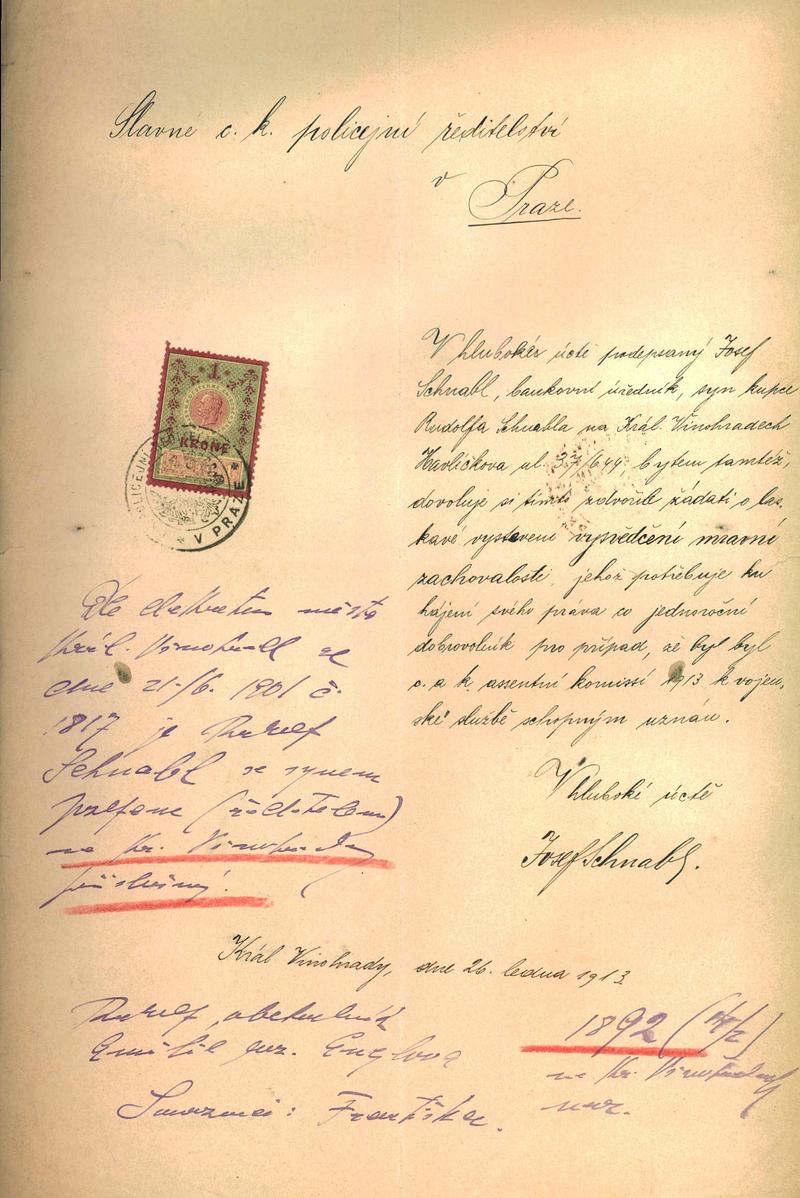 Slavné c. k. policejní ředitelství
v
Praze.
1
KRONE
POLICEJNÍ
V PRAZE
V hluboké úctě podepsaný Josef
Schnabl, bankovní úředník, syn kupce
Rudolfa Schnabla na Král. Vinohradech
Havlíčkova ul. /644, bytem tamtéž,
dovoluje si tímto zdvořile žádati o las-
kavé vystavení vysvědčení mravní
zachovalosti, jehož potřebuje ku
hájení svého práva co jednoroční
dobrovolník pro případ, že by byl
c. a k. assentní komissí 1913 k vojen-
ské službě schopným uznán.
V hluboké úctě
Josef Schnabl.
Dle dekretu města
Král. Vinohrad ze
dne 21./6. 1901 č.
1817 je Rudolf
Schnabl se synem
Josefem (žadatelem)
na Kr. Vinohrady
příslušný.
Král Vinohrady, dne 26. ledna 1913
Rudolf, obchodník
Emilie roz. Englova
Sourozenci: Františka.
1892
na Kr. Vinohradech
nar.